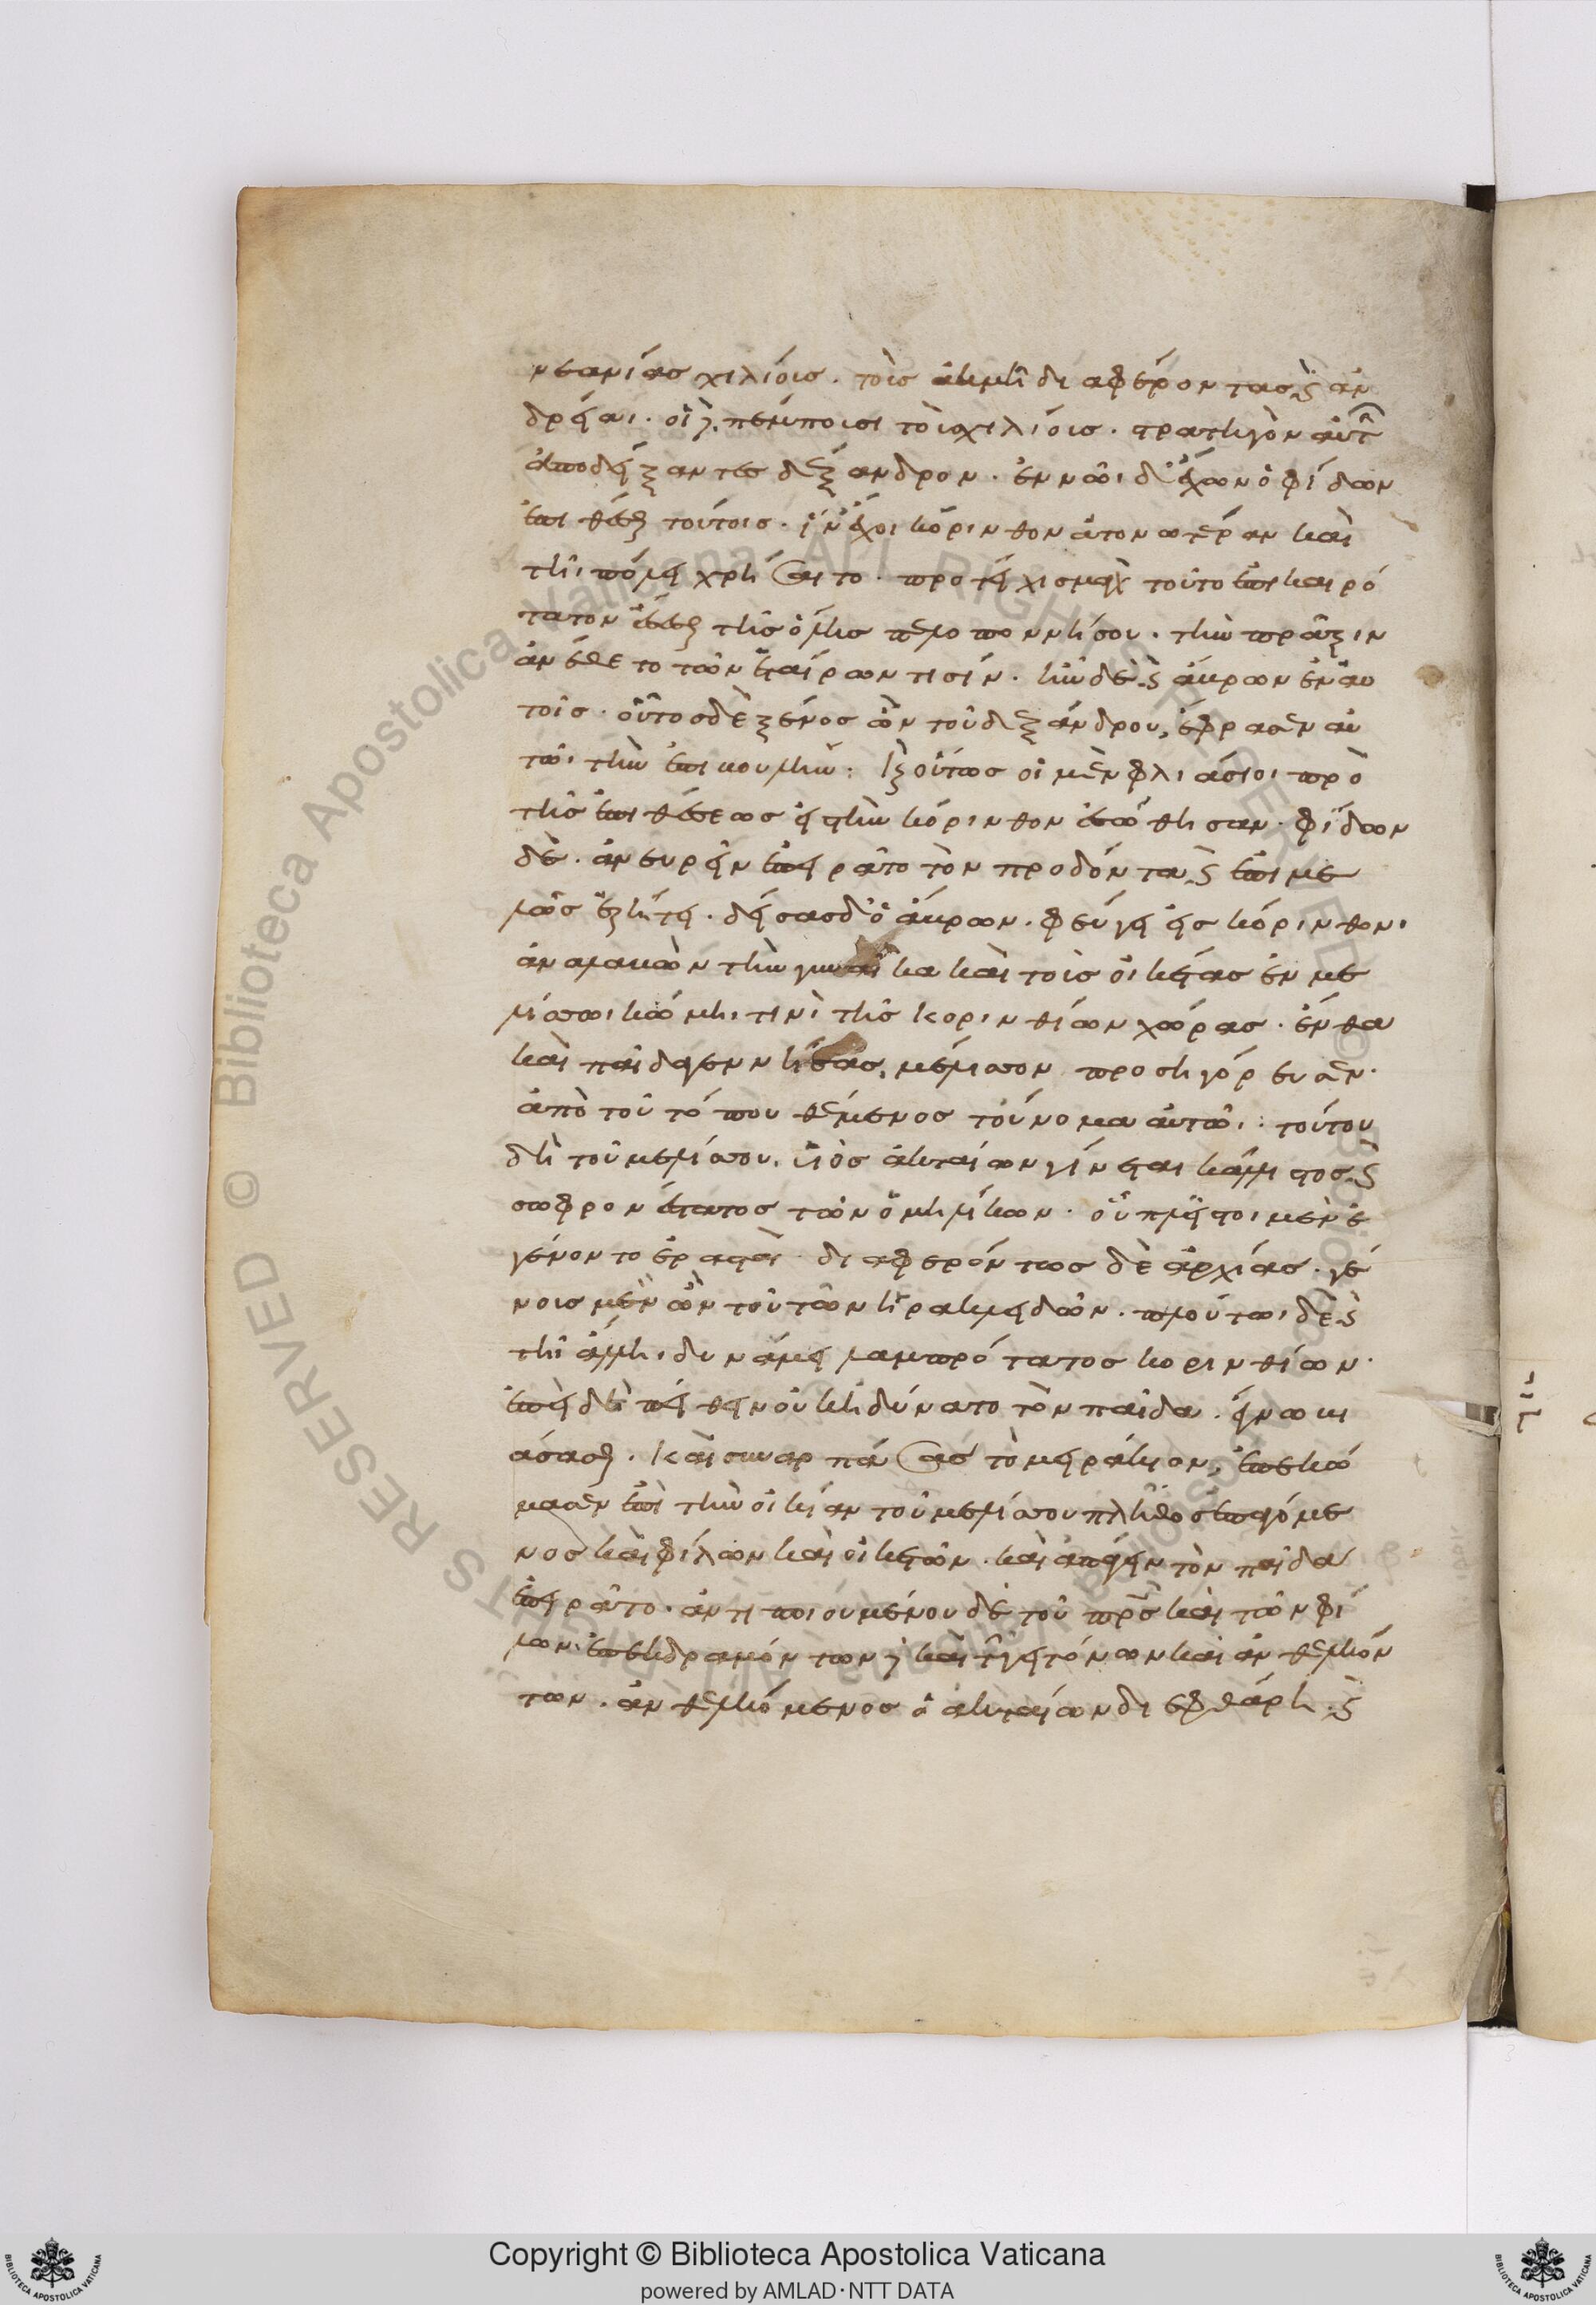 νεανίας χιλίους. τοὺς ἀκμῆι διαφέροντας καὶ ἀν
δρείαι. οἱ δὲ πέμπουσι τοὺς χιλίους. στρατηγὸν αὐτῶν
ἀποδείξαντες δέξανδρον. ἐν νῶι δ' ἔχων ὁ φείδων
ἐπιθέσθαι τούτοις. ἵν' ἔχοι κόρινθον ἀτονωτέραν καὶ
τῆι πόλει χρήσαιτο. προτείχισμα γὰρ τοῦτο ἐπικαιρό
τατον ἔσεσθαι τῆς ὅλης πελοποννήσου. τὴν πρᾶξιν
ἀνέθετο τῶν ἑταίρων τισίν. ἦν δὲ καὶ ἄκρων ἐν αὐ
τοῖς. οὗτος δὲ ξένος ὢν τοῦ δεξάνδρου, ἔφρασεν αὐ
τῶι τὴν ἐπιβουλήν: καὶ οὕτως οἱ μὲν φλιάσιοι πρὸ
τῆς ἐπιθέσεως εἰς τὴν κόρινθον ἐσώθησαν. φείδων
δὲ. ἀνευρεῖν ἐπειρᾶτο τὸν προδόντα. καὶ ἐπιμε
λῶς ἐζήτει. δείσας δ' ὁ ἄκρων. φεύγει εἰς κόρινθον.
ἀναλαβὼν τὴν γυναῖκα καὶ τοὺς οἰκέτας ἐν με
λίσσωι κώμηι τινὶ τῆς Κορινθίων χώρας. ἔνθα
καὶ παῖδα γεννήσας, μέλισσον προσηγόρευσεν.
ἀπὸ τοῦ τόπου θέμενος τοὔνομα αὐτῶι: τούτου
δὴ τοῦ μελίσσου. υἱὸς ἀκταίων γίνεται κάλλιστος. καὶ
σωφρονέστατος τῶν ὁμηλίκων. οὗ πλεῖστοι μὲν ἐ
γένοντο ἐρασταὶ διαφερόντως δὲ ἀρχίας. γέ
νους μὲν ὢν τοῦ τῶν ἡρακλειδῶν. πλούτωι δὲ καὶ
τῆι ἄλληι δυνάμει λαμπρότατος κορινθίων.
ἐπεὶ δὲ πείθειν οὐκ ἠδύνατο τὸν παῖδα. ἔγνω βι
άσασθαι. Καὶ συναρπάσας τὸ μειράκιον, ἐπεκώ
μασεν ἐπὶ τὴν οἰκίαν τοῦ μελίσσου πλῆθος ἐπαγόμε
νος καὶ φίλων καὶ οἰκετῶν. καὶ ἀπάγειν τὸν παῖδα
ἐπειρᾶτο. ἀντιποιουμένου δὲ τοῦ πατρὸς καὶ τῶν φί
λων. ἐπεκδραμόντων δὲ καὶ τῶν γειτόνων καὶ ἀνθελκόν
των. ἀνθελκόμενος ὁ ἀκταίων διεφθάρη. καὶ